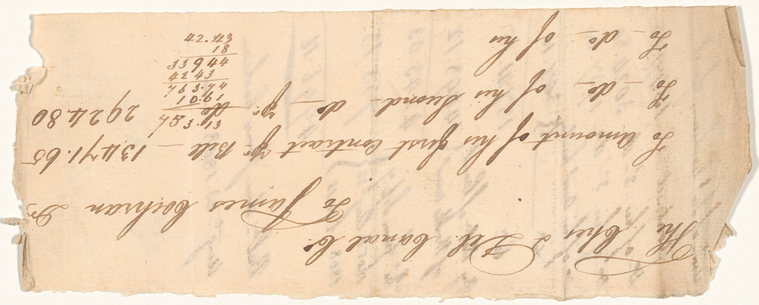 The Ches & Del. Canal Co.
To James Cochran Dr.
To amount of his first Contract pr. Bill — 13471.65
To — do — of his Second — do — pr. do 2924.80
To — do — of his
42.43
18
33944
4243
763.74
10.61
753.13